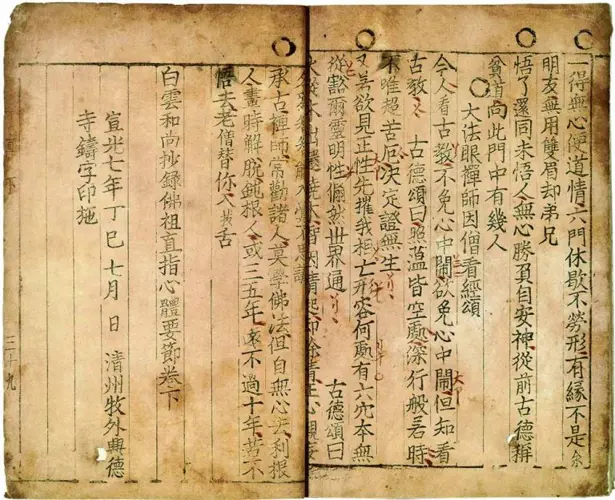 一得無心便道情六門休歇不勞形有緣不是余
朋友無用雙眉却弟兄
悟了還同未悟人無心勝負自安神從前古德稱
貧道向此門中有幾人
大法眼禪師因僧看經頌
今人看古教不免心中鬧欲免心中鬧但知看
古教 古德頌曰照蘊皆空處深行般若時
不唯超苦厄決定證無生
又若欲見正性先摧我相亡形容何處有六穴本無
從豁爾靈明性儞然世界通 古德頌曰
出還燒木智因情起却除情
承古禪師常勸諸人莫學佛法但自無心去利根
人晝時解脫鈍根人或三五年遠不過十年若不
悟去老僧替你入拔舌
白雲和尚抄錄佛祖直指心體要節卷下
宣光七年丁巳七月 日 清州牧外興德
寺鑄字印施
下
三十九